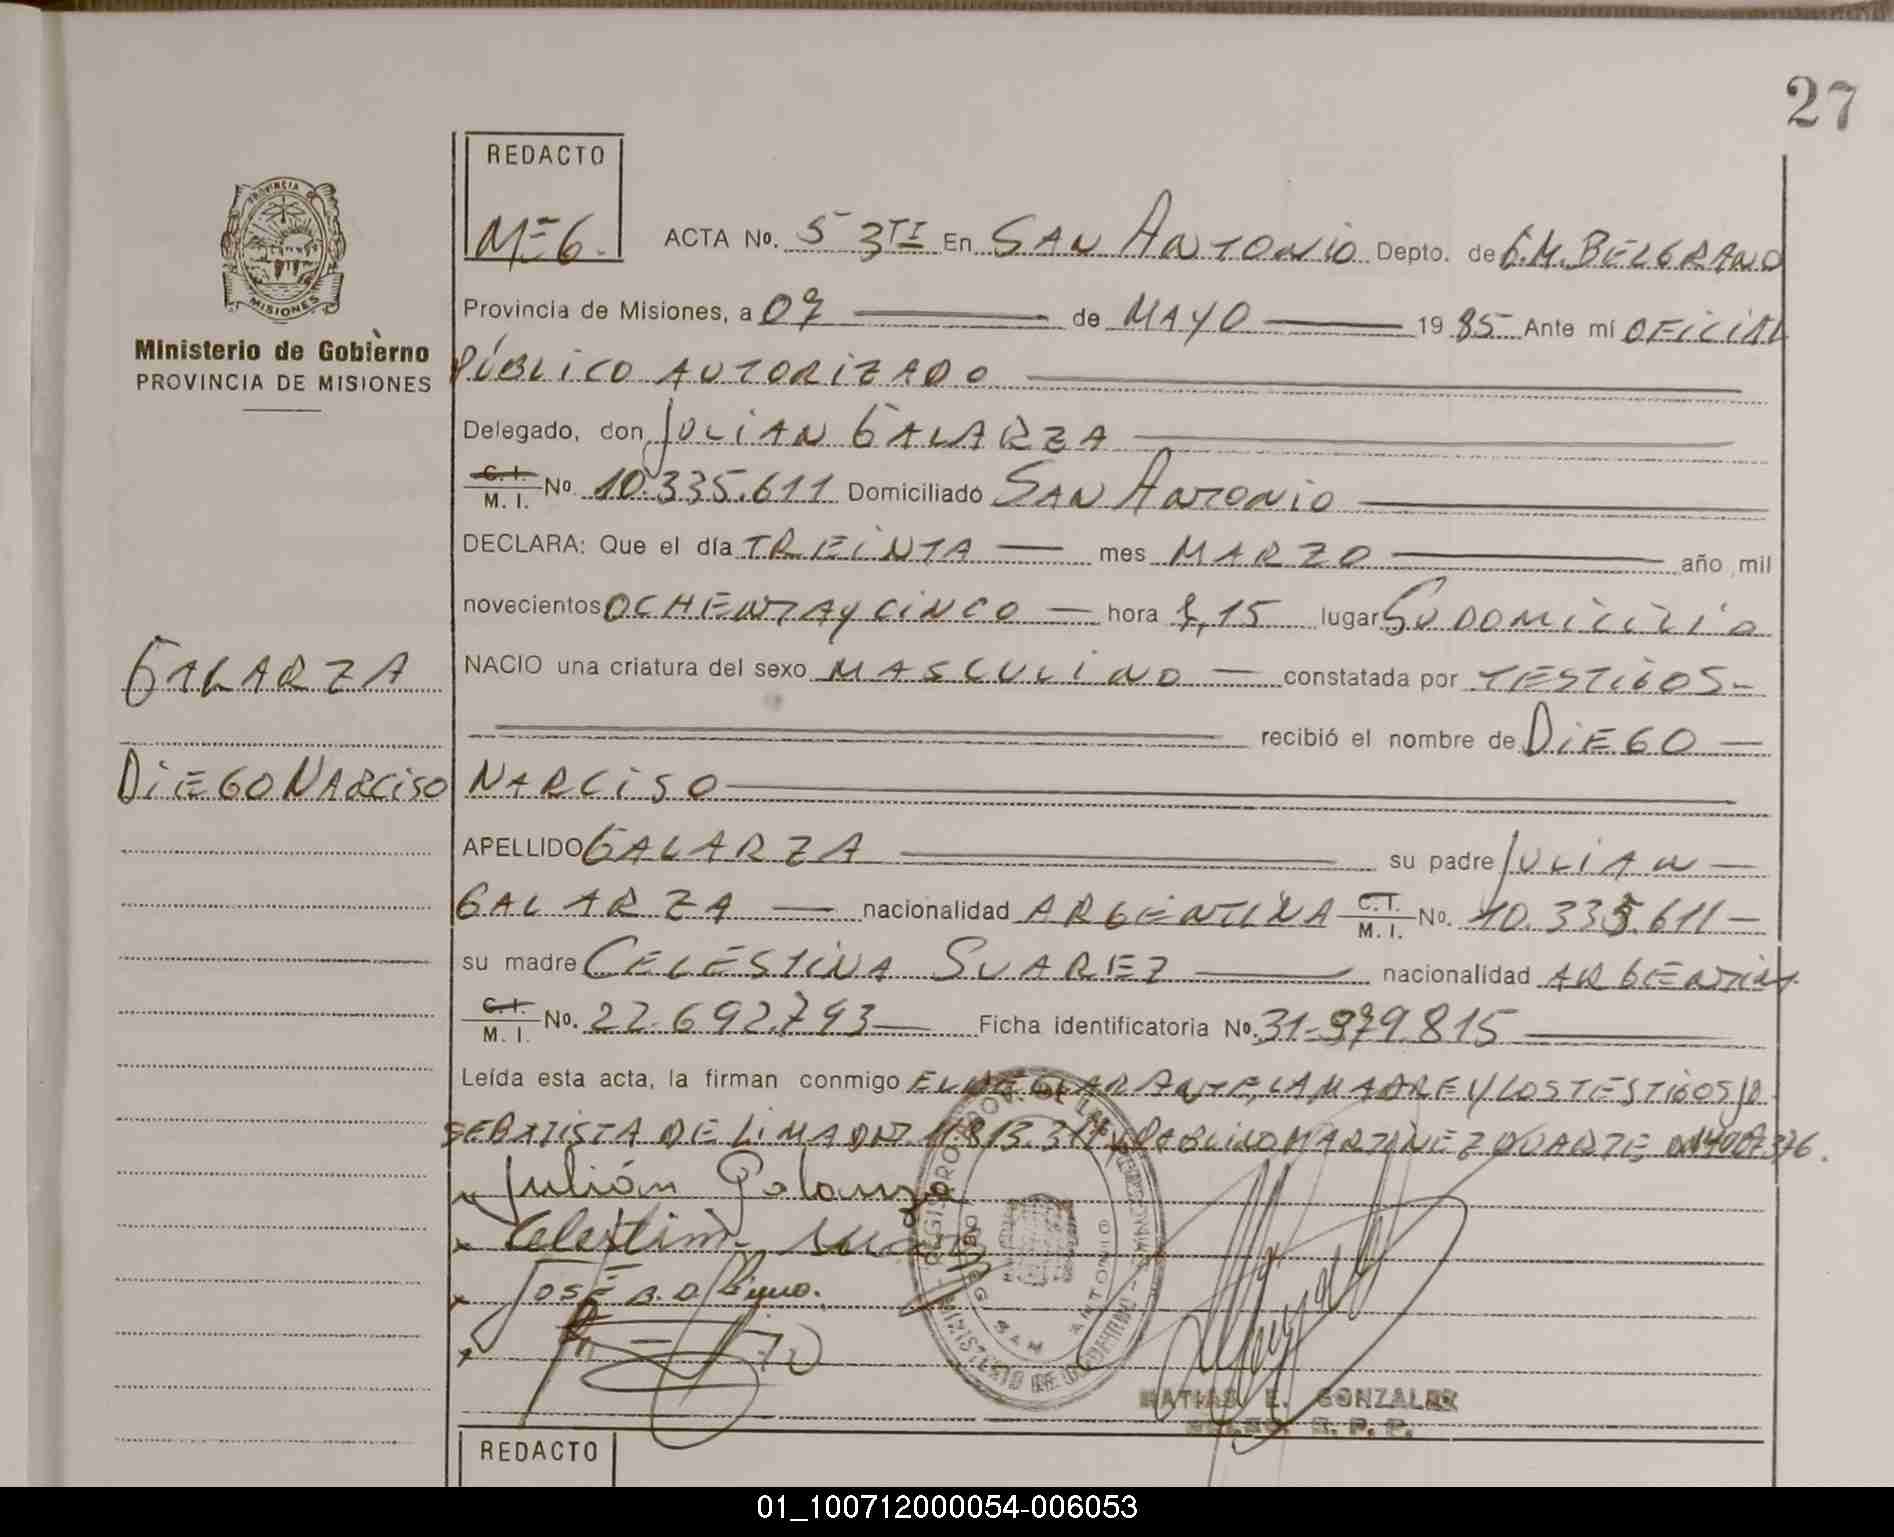 27
REDACTO
MEG.
ACTA Nº. 53 TI En SAN ANTONIO Depto. de G.M.BELGRANO
Provincia de Misiones, a 07 de MAYO 1985 Ante mí OFICIAL
PÚBLICO AUTORIZADO
Delegado, don JULIAN GALARZA
C.I. M. I. Nº 10.335.611 Domiciliado SAN ANTONIO
DECLARA: Que el día TREINTA mes MARZO año mil
novecientos OCHENTA Y CINCO hora 8,15 lugar SU DOMICILIO
NACIO una criatura del sexo MASCULINO constatada por TESTIGOS-
recibió el nombre de DIEGO
NARCISO
APELLIDO GALARZA su padre JULIAN
GALARZA nacionalidad ARGENTINA C.I. M. I. Nº. 10.335.611
su madre CELESTINA SUAREZ nacionalidad ARGENTINA
C.I. M. I. Nº. 22.692.793 Ficha identificatoria Nº. 31.979.815
Leída esta acta, la firman conmigo EL DECLARANTE, LA MADRE Y LOS TESTIGOS JO
SE BATISTA DE LIMA DNI PABLINO MARTINEZ DUARTE,
Julián Galarza
Celestina
JOSÉ
PROVINCIA DE
MISIONES
Ministerio de Gobierno
PROVINCIA DE MISIONES
GALARZA
DIEGO NARCISO
SAN ANTONIO
MATIAS E. GONZALEZ
R. P. P.
REDACTO
01_100712000054-006053